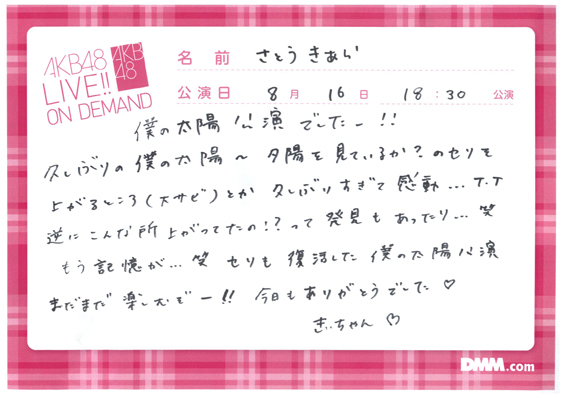 AKB48
LIVE!!
ON DEMAND
AKB
48
名前 さとう きあら
公演日 8月 16日 18:30 公演
僕の太陽 公演 でしたー!!
久しぶりの僕の太陽〜 夕陽を見ているか?のセリを
上がるところ(大サビ)とか 久しぶりすぎて感動... T.T
逆にこんな所上がってたの!?って発見もあったり... 笑
もう記憶が... 笑 セリも復活した僕の太陽公演
まだまだ楽しむぞー!! 今日もありがとうでした♡
きぃちゃん♡
DMM.com